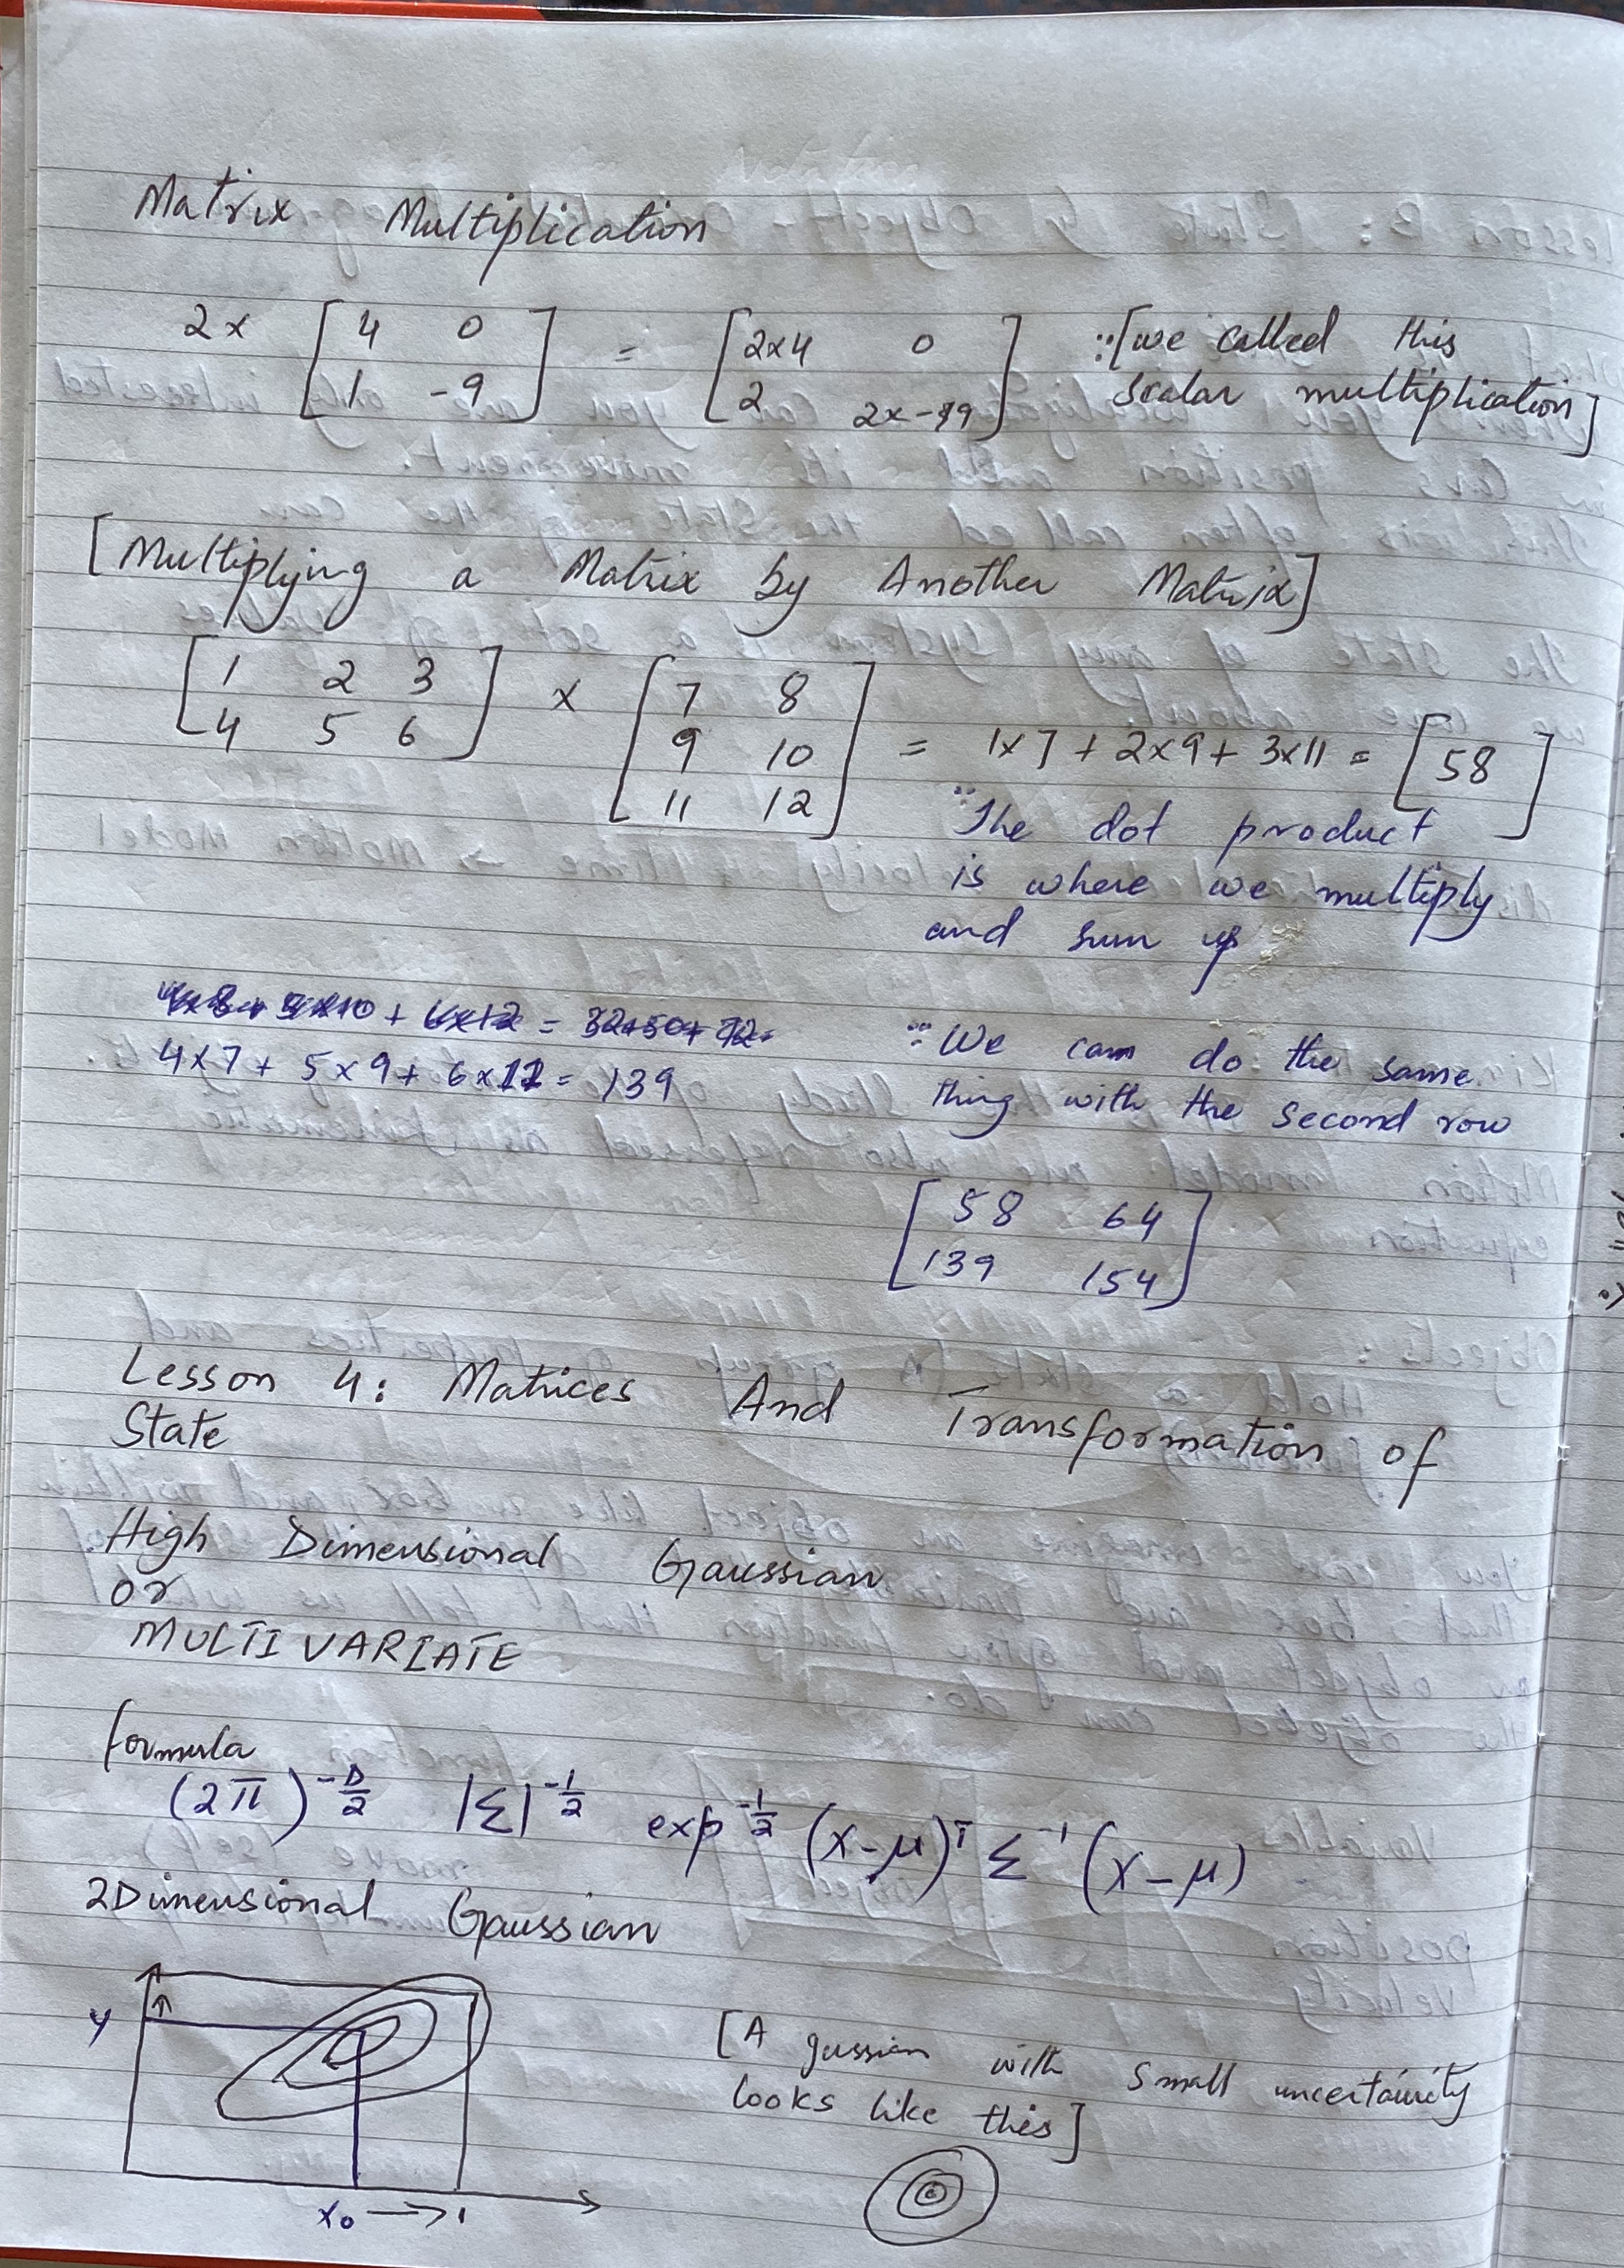 Matrix Multiplication
2x [4 0 = [2x4 0 ∵[we called this
1 -9] 2 2x-9] scalar multiplication]
[Multiplying a Matrix by Another Matrix]
[1 2 3 x [7 8
4 5 6] 9 10 = 1x7 + 2x9 + 3x11 = [58 ]
11 12]
∵The dot product
is where we multiply
and sum up
4x7 + 5x9 + 6x11 = 139
∵We can do the same
thing with the second row
[58 64
139 154]
Lesson 4: Matrices And Transformation of
State
High Dimensional Gaussian
or
MULTIVARIATE
formula
(2π)^-D/2 |Σ|^-1/2 exp^-1/2 (x-μ)^T Σ^-1 (x-μ)
2Dimensional Gaussian
y
x₀ → 1
[A gussian with small uncertainity
looks like this]